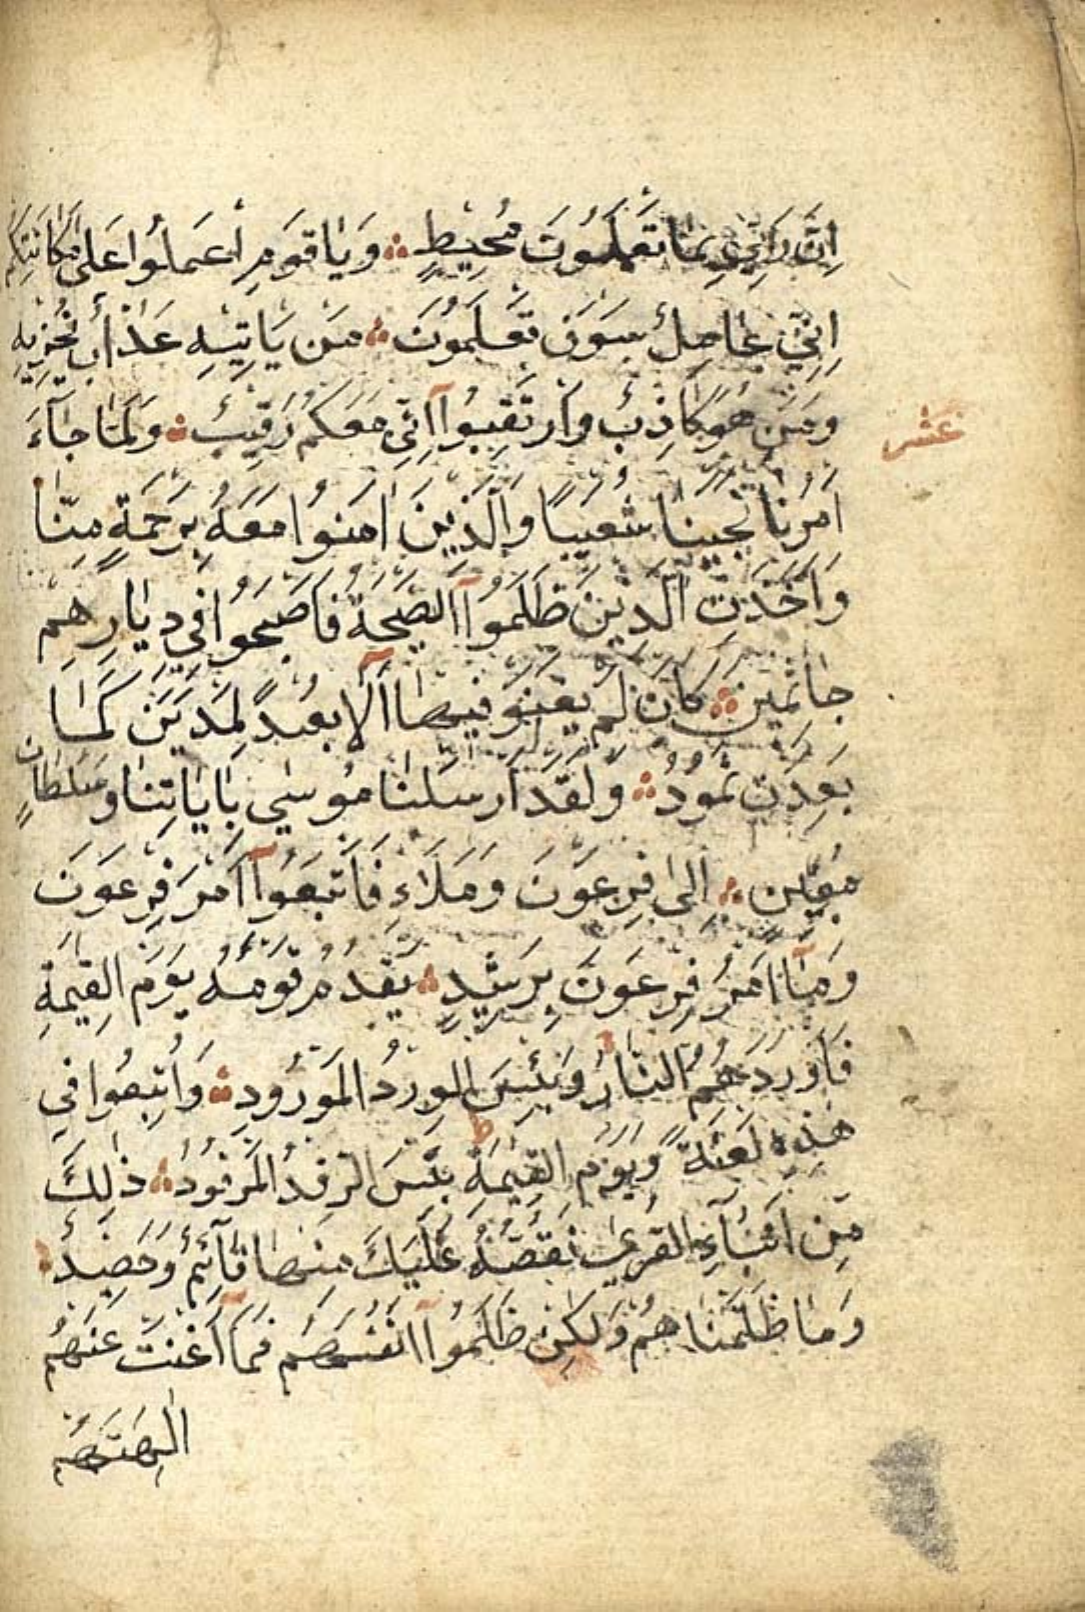 اِنَّ رَبِّي بِمَا تَعْمَلُونَ مُحِيطٌ ۞ وَيَا قَوْمِ اعْمَلُوا عَلَىٰ مَكَانَتِكُمْ
اِنِّي عَامِلٌ سَوْفَ تَعْلَمُونَ ۞ مَنْ يَاْتِيهِ عَذَابٌ يُخْزِيهِ
وَمَنْ هُوَ كَاذِبٌ وَارْتَقِبُوا اِنِّي مَعَكُمْ رَقِيبٌ ۞ وَلَمَّا جَآءَ
عشر
اَمْرُنَا نَجَّيْنَا شُعَيْبًا وَالَّذِينَ اٰمَنُوا مَعَهُ بِرَحْمَةٍ مِنَّا
وَاَخَذَتِ الَّذِينَ ظَلَمُوا الصَّيْحَةُ فَاَصْبَحُوا فِي دِيَارِهِمْ
جَاثِمِينَ ۞ كَاَنْ لَمْ يَغْنَوْا فِيهَا اَلَا بُعْدًا لِمَدْيَنَ كَمَا
بَعِدَتْ ثَمُودُ ۞ وَلَقَدْ اَرْسَلْنَا مُوسٰى بِاٰيَاتِنَا وَسُلْطَانٍ
مُبِينٍ ۞ اِلٰى فِرْعَوْنَ وَمَلَاءِهِ فَاتَّبَعُوا اَمْرَ فِرْعَوْنَ
وَمَآ اَمْرُ فِرْعَوْنَ بِرَشِيدٍ ۞ يَقْدُمُ قَوْمَهُ يَوْمَ الْقِيٰمَةِ
فَاَوْرَدَهُمُ النَّارَ وَبِئْسَ الْوِرْدُ الْمَوْرُودُ ۞ وَاُتْبِعُوا فِي
هٰذِهِ لَعْنَةً وَيَوْمَ الْقِيٰمَةِ بِئْسَ الرِّفْدُ الْمَرْفُودُ ۞ ذٰلِكَ
مِنْ اَنْبَآءِ الْقُرٰى نَقُصُّهُ عَلَيْكَ مِنْهَا قَآئِمٌ وَحَصِيدٌ ۞
وَمَا ظَلَمْنَاهُمْ وَلٰكِنْ ظَلَمُوا اَنْفُسَهُمْ فَمَآ اَغْنَتْ عَنْهُمْ
اٰلِهَتُهُمْ